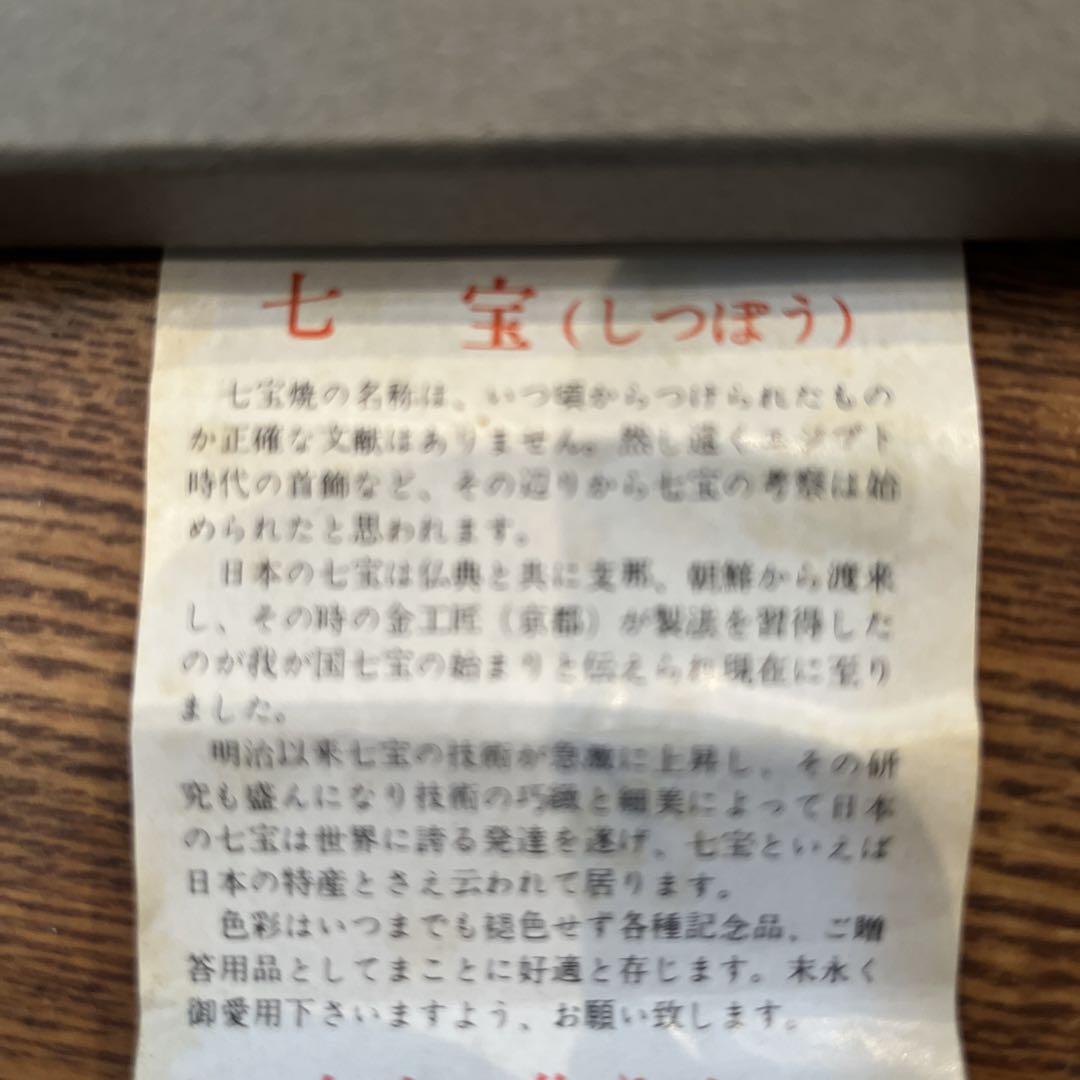 七 宝(しっぽう)
七宝焼の名称は、いつ頃からつけられたもの
か正確な文献はありません。然し遠くエジプト
時代の首飾など、その辺りから七宝の考察は始
められたと思われます。
日本の七宝は仏典と共に支那、朝鮮から渡来
し、その時の金工匠(京都)が製法を習得した
のが我が国七宝の始まりと伝えられ現在に至り
ました。
明治以来七宝の技術が急激に上昇し、その研
究も盛んになり技術の巧緻と細美によって日本
の七宝は世界に誇る発達を遂げ、七宝といえば
日本の特産とさえ云われて居ります。
色彩はいつまでも褪色せず各種記念品、ご贈
答用品としてまことに好適と存じます。末永く
御愛用下さいますよう、お願い致します。